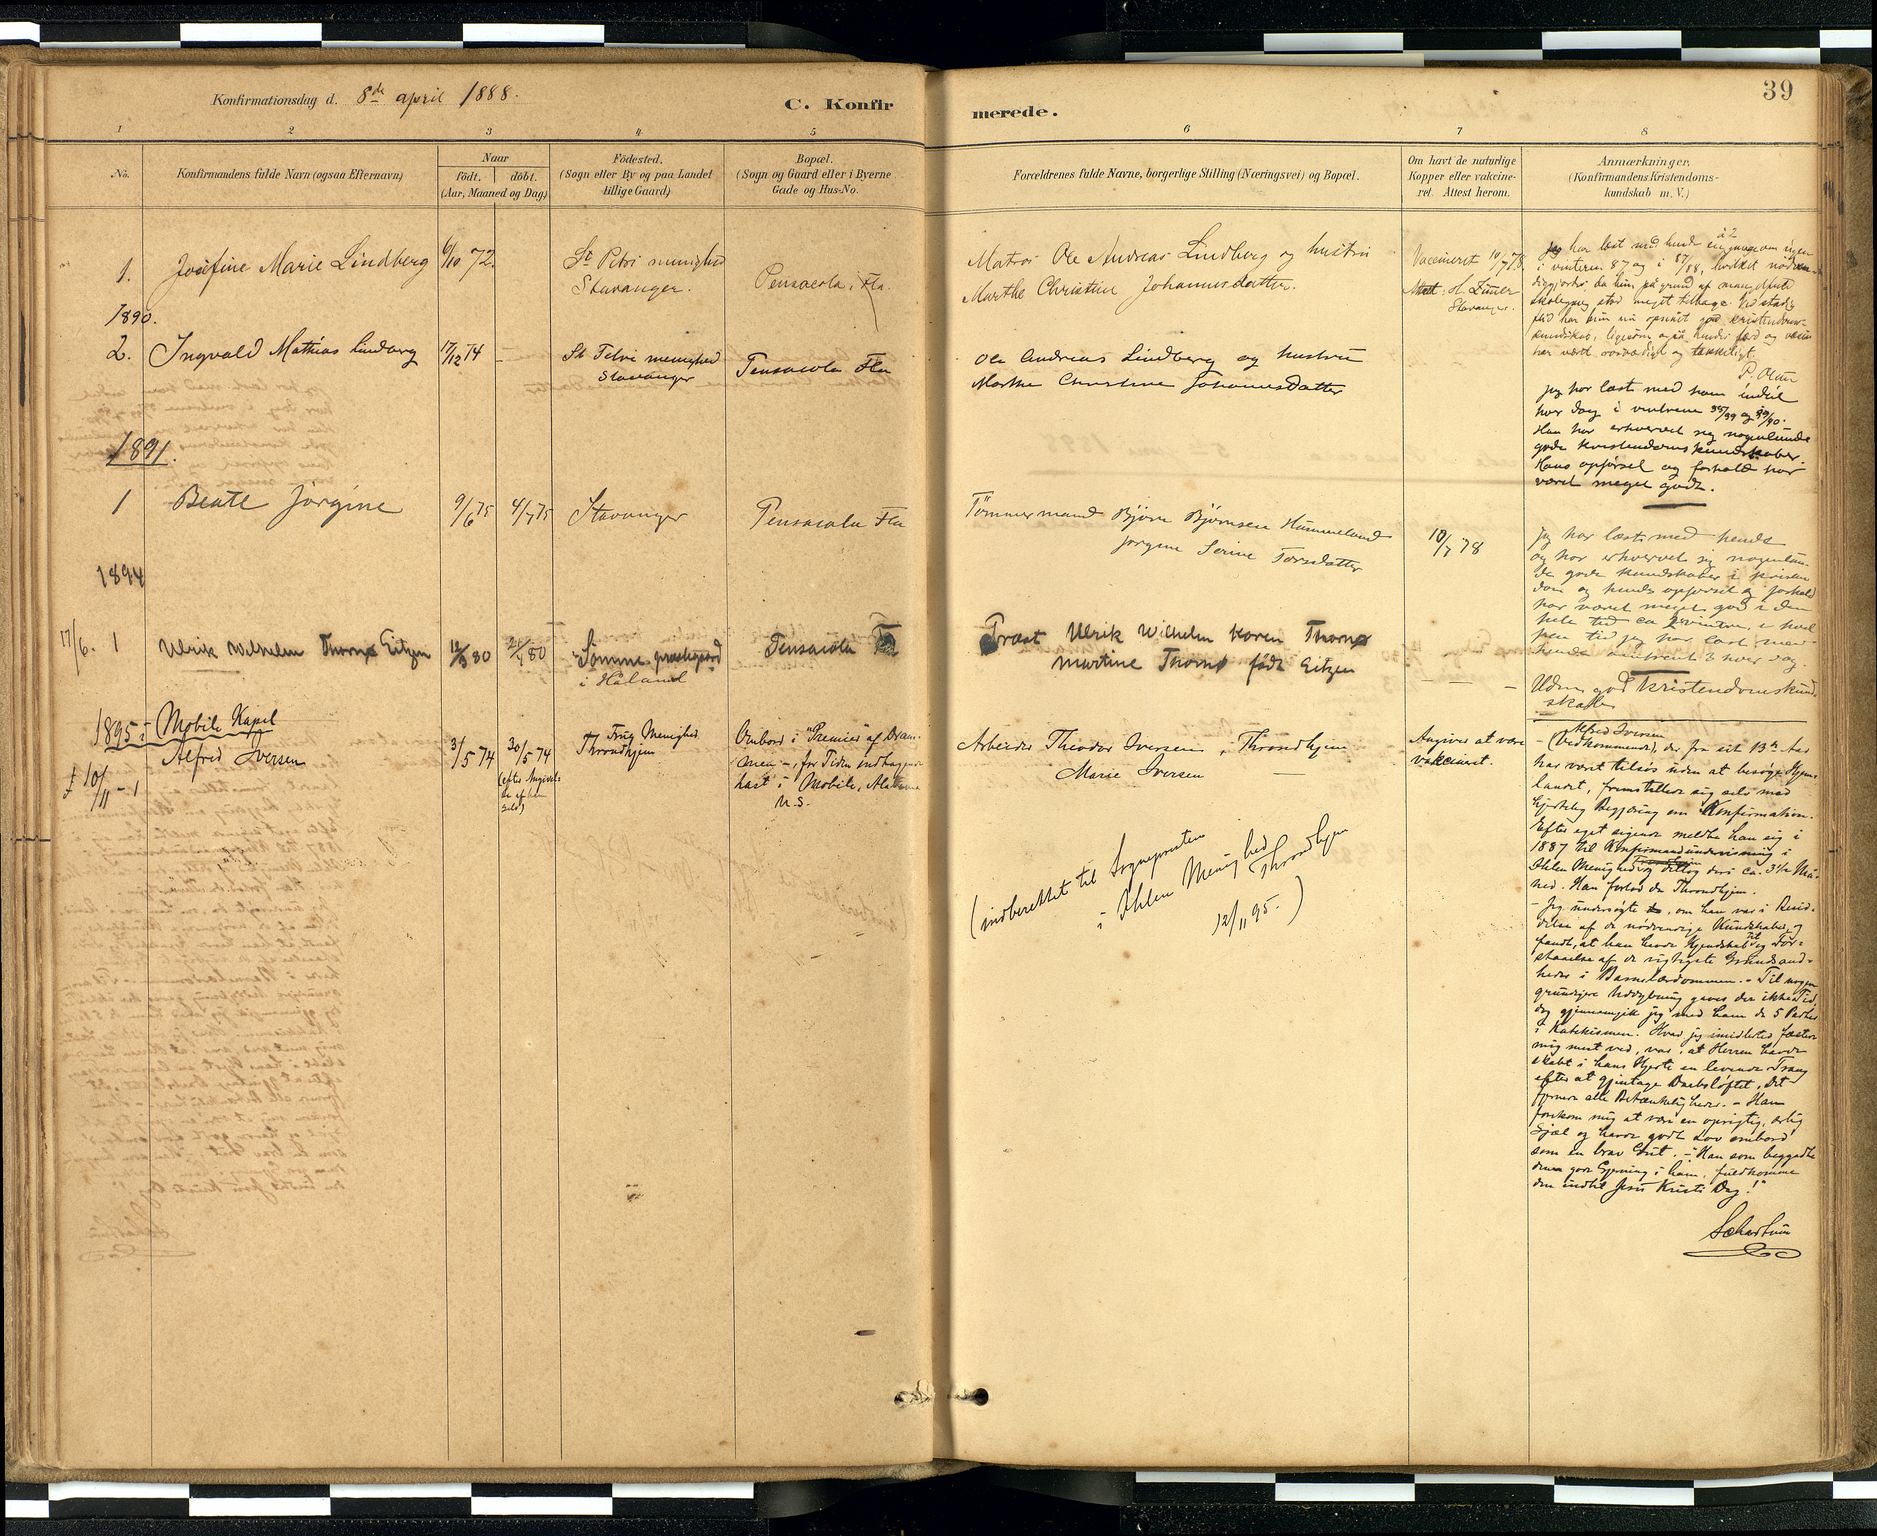 Konfirmationsdag d. 8de april 1888.
C. Konfir
merede.
39
1
2
3
4
5
6
7
8
No.
Konfirmandens fulde Navn (ogsaa Efternavn)
Naar
födt.
döbt.
(Aar, Maaned og Dag)
Födested.
(Sogn eller By og paa Landet
tillige Gaard)
Bopæl.
(Sogn og Gaard eller i Byerne
Gade og Hus-No.
Forældrenes fulde Navne, borgerlige Stilling (Næringsvei) og Bopæl.
Om havt de naturlige
Kopper eller vakcine-
ret. Attest herom.
Anmærkninger.
(Konfirmandens Kristendoms-
kundskab m. V.)
1. Josefine Marie Lindberg
6/10 72.
St Petri menighed
Stavanger.
Pensacola, Fla.
Matros Ole Andreas Lindberg og hustru
Marthe Christine Johannesdatter.
Vaccineret 10/7 78.
Attest: H. Zimer
Stavanger.
Jeg har læst med hende
i vinteren 87 og i 87/88, hvilket nødven-
diggjordes, da hun på grund af mangelfuld
skolegang stod meget tilbage. Ved stadig
flid har hun nu opnået god kristendoms-
kundskab, ligesom også hendes færd og væsen
har vært værdigt og tækkeligt.
P. Olsen
1890.
2. Ingvald Mathias Lindberg
17/12 74
—
St Petri menighed
Stavanger
Pensacola Fla
Ole Andreas Lindberg og hustru
Marthe Christine Johannesdatter
Jeg har læst med ham indtil
hver dag i vintrene 88/89 og 89/90.
Han har erhvervet sig nogenlunde
gode kristendomskundskaber.
Hans opførsel og forhold har
været meget godt.
1891.
1 Beate Jørgine
9/6 75
4/7 75
Stavanger
Pensacola Fla
Tömmermand Bjørn Bjørnsen Hummeland
Jørgine Serine Torsdatter
10/7 78
Jeg har læst med hende
og har erhvervet sig nogenlun-
de gode kundskaber i kristen
dom og hendes opførsel og forhold
har været meget god i den
hele tid ca 2 vintre, i hvil
ken tid jeg har læst med
hende omtrent 3 hver dag.
1894
17/6. 1 Ulrik Wilhelm Thorne Eitzen
12/3 80
Sömme prestegaard
i Håland
Pensacola Fla
Præst Ulrik Wilhelm Koren Thorne
Martine Thorne født Eitzen
— — —
Udm. god Kristendomskund
skab
1895 i Mobile Kapel
£ 10/11 - 1
Alfred Iversen
3/5 74
30/5 74
(efter Angivel-
se af ham
selv)
Frue Menighed
Throndhjem
Ombord i "Premier" af Dram-
men -, for Tiden indtagende
last i Mobile, Alabama
U.S.
Arbeider Theodor Iversen, Throndhjem
Marie Iversen —
Angives at være
vakcineret.
(indberettet til Sognepresten
i Ihlen Menighed
Throndhjem
12/11 95.)
Alfred Iversen
- (Vedkommende), der fra sit 13de Aar
har været tilsøs uden at besøge Hjem-
landet, fremstillede sig selv med
hjertelig Begjæring om Konfirmation.
Efter eget sigende meldte han sig i
1887 til Konfirmandundervisning i
Ihlen Menighed Trondhjem og deltog deri ca. 3½ Maa-
ned. Han forlod da Throndhjem.
- Jeg undersøgte, om han var i Besid-
delse af de nødvendige Kundskaber, og
fandt, at han havde Kjendskab til og For-
staaelse af de vigtigste Grundsand-
heder i Barnelærdommen. - Til nogen
grundigere Uddybning gaves der ikke Tid,
dog gjennemgik jeg med ham de 5 Parter
i Katekismen. Hvad jeg imidlertid fæstede
mig mest ved, var, at Herren havde
skabt i hans Hjerte en levende Trang
efter at gjentage Daabsløftet. Det
fjernede alle Betænkeligheder. - Han
forekom mig at være en oprigtig, ærlig
Sjæl og havde godt Lov ombord
som en brav Gut. - "Han som begyndte
den gode Gjerning i ham, fuldkomme
den indtil Jesu Kristi Dag!"